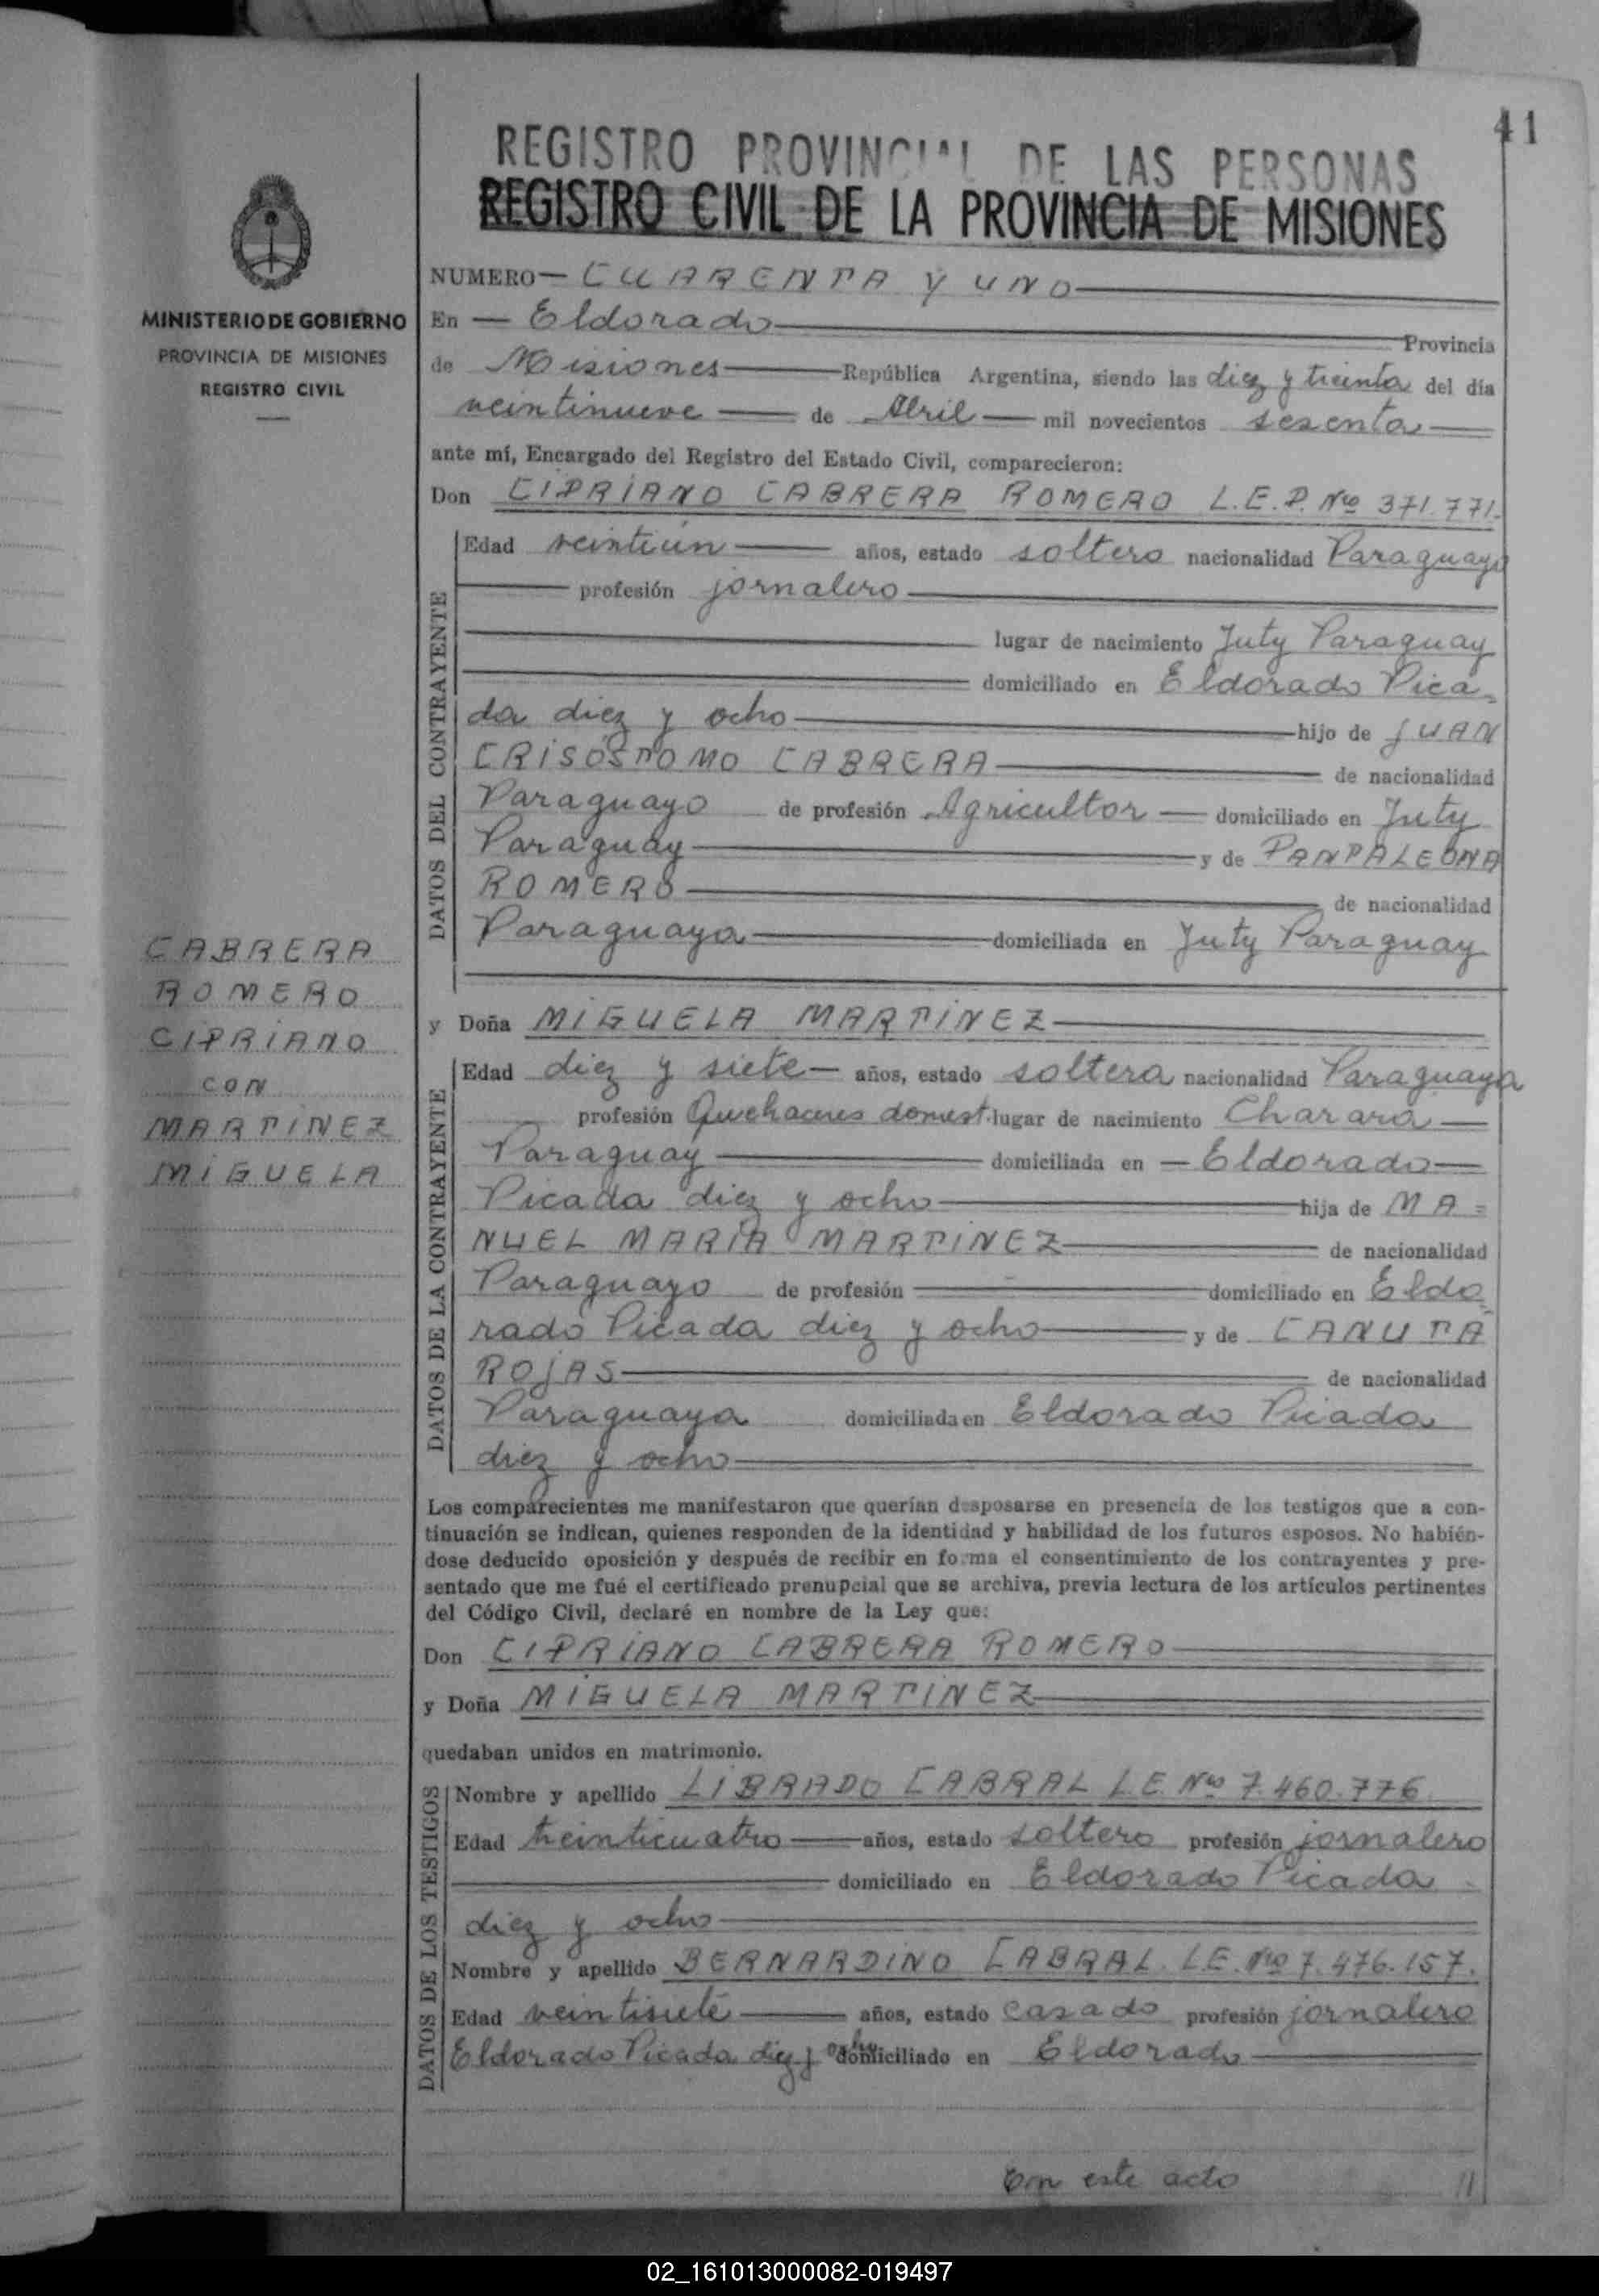 41
REGISTRO PROVINCIAL DE LAS PERSONAS
REGISTRO CIVIL DE LA PROVINCIA DE MISIONES
MINISTERIO DE GOBIERNO
PROVINCIA DE MISIONES
REGISTRO CIVIL
CABRERA
ROMERO
CIPRIANO
CON
MARTINEZ
MIGUELA
NUMERO — CUARENTA Y UNO
En — Eldorado Provincia
de Misiones República Argentina, siendo las diez y treinta del día
veintinueve de Abril mil novecientos sesenta
ante mí, Encargado del Registro del Estado Civil, comparecieron:
Don CIPRIANO CABRERA ROMERO L.E.P. Nro 371.771.
DATOS DEL CONTRAYENTE
Edad veintiún años, estado soltero nacionalidad Paraguayo
profesión jornalero
lugar de nacimiento Juty Paraguay
domiciliado en Eldorado Pica=
da diez y ocho hijo de JUAN
CRISÓSTOMO CABRERA de nacionalidad
Paraguayo de profesión Agricultor domiciliado en Juty
Paraguay y de PANTALEONA
ROMERO de nacionalidad
Paraguaya domiciliada en Juty Paraguay
y Doña MIGUELA MARTINEZ
DATOS DE LA CONTRAYENTE
Edad diez y siete años, estado soltera nacionalidad Paraguaya
profesión Quehaceres domest. lugar de nacimiento Charara
Paraguay domiciliada en — Eldorado
Picada diez y ocho hija de MA=
NUEL MARIA MARTINEZ de nacionalidad
Paraguayo de profesión domiciliado en Eldo=
rado Picada diez y ocho y de CANUTA
ROJAS de nacionalidad
Paraguaya domiciliada en Eldorado Picada
diez y ocho
Los comparecientes me manifestaron que querían desposarse en presencia de los testigos que a con-
tinuación se indican, quienes responden de la identidad y habilidad de los futuros esposos. No habién-
dose deducido oposición y después de recibir en forma el consentimiento de los contrayentes y pre-
sentado que me fué el certificado prenupcial que se archiva, previa lectura de los artículos pertinentes
del Código Civil, declaré en nombre de la Ley que:
Don CIPRIANO CABRERA ROMERO
y Doña MIGUELA MARTINEZ
quedaban unidos en matrimonio.
DATOS DE LOS TESTIGOS
Nombre y apellido LIBRADO CABRAL L.E. Nro 7.460.776
Edad treinticuatro años, estado soltero profesión jornalero
domiciliado en Eldorado Picada
diez y ocho
Nombre y apellido BERNARDINO CABRAL. L.E. Nro 7.476.157.
Edad veintisiete años, estado casado profesión jornalero
Eldorado Picada diez y ocho domiciliado en Eldorado
En este acto //
02_161013000082-019497